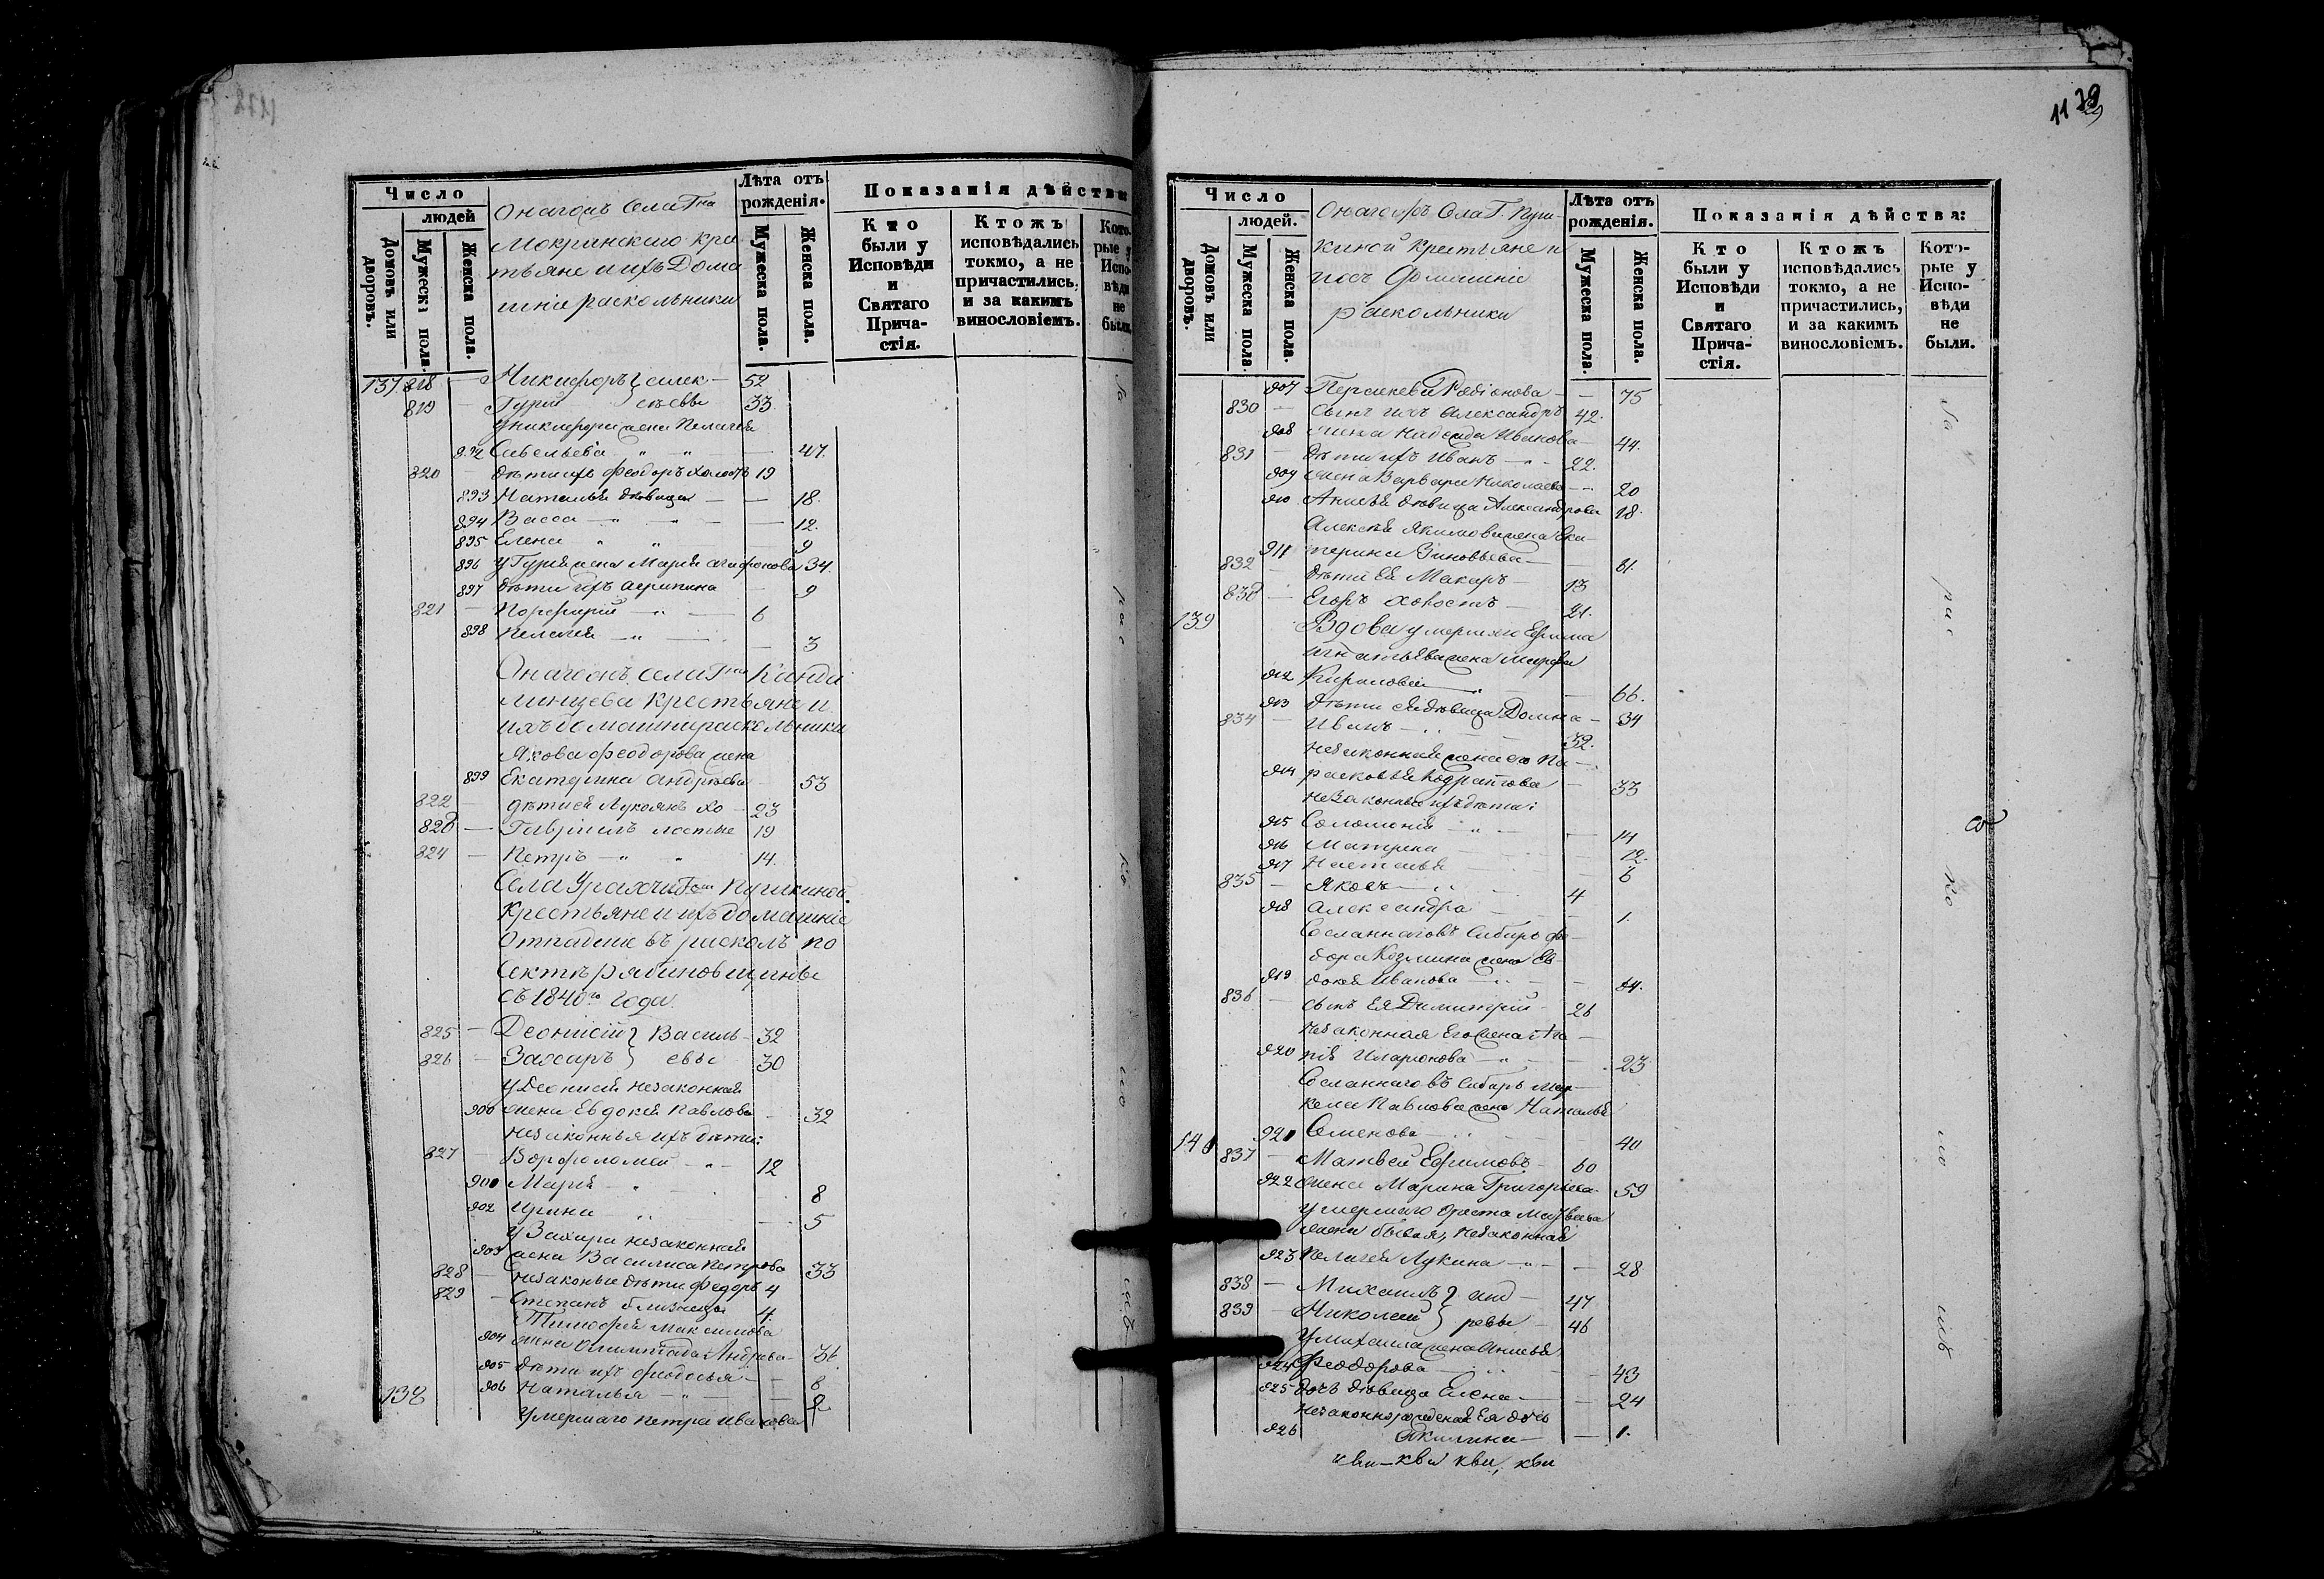 Число
людей
Домовъ или дворовъ.
Мужеска пола.
Женска пола.
Онагожъ Села Гна
Мокринскаго кре
тьяне и ихъ Дома
шніе раскольники
Лѣта отъ рожденія.
Мужеска пола.
Женска пола.
Показанія дѣйства:
Кто были у Исповѣди и Святаго Причастія.
Ктожъ исповѣдались токмо, а не причастились, и за какимъ винословіемъ.
Которые у Исповѣди не были.
137 818 — Никифоръ } алек — 52
819 — Гурій } сѣевы 33
у никифора жена Пелагея
892 Савельева " " — 47
820 — дѣти ихъ Феодоръ холостъ 19
893 Наталья дѣвица — — 18
894 Васса — " — " — 12
895 Елена " " 9
896 у Гурія жена Марія агафонова 34
897 дѣти ихъ агрипина — 9
821 — Порфирій — " — 6
898 Пелагея — " — — 3
Онагожъ села Гна Канда
линцева крестьяне и
ихъ домашни раскольники
Якова феодорова жена
899 Екатерина андрѣева 53
822 — дѣти ея Лукоянъ хо — 23
823 — Гавріилъ лостые 19
824 — Петръ — " " 14
Села Урахчи Гжи Пушкиной
Крестьяне и ихъ домашніе
Отпадшіе въ расколъ по
Сектѣ рябиновщинѣ
съ 1840го года
825 — Деонисій } Василь — 32
826 — Захаръ } евы 30
у Деонисія незаконная
900 жена Евдокія Павлова — 32
незаконныя ихъ дѣти:
827 — Ворфоломей — " — 12
901 Марія — " — 8
902 Ирина — " — 5
у Захара незаконная
903 жена Василиса Петрова 33
828 — незаконые дѣти федоръ 4
829 — Степанъ близнецы 4
Тимофея Максимова
904 жена Олимпіада Андреева — 36
905 дѣти ихъ феодосья — — 8
138 906 Наталья — " — — 2
Умершаго Петра Иванова
1179
Число
людей.
Домовъ или дворовъ.
Мужеска пола.
Женска пола.
Онагожъ Села Г. Пуш-
киной Крестьяне и
ихъ Домашніе
раскольники
Лѣта отъ рожденія.
Мужеска пола.
Женска пола.
Показанія дѣйства:
Кто были у Исповѣди и Святаго Причастія.
Ктожъ исповѣдались токмо, а не причастились, и за какимъ винословіемъ.
Которые у Исповѣди не были.
907 Родіонова — — 75
830 — Сынъ ихъ Александръ 42
908 жена Надежда Иванова — 44
831 — дѣти ихъ Иванъ — " — 22
909 жена Варвара Николаева — 20
910 Анисья дѣвица Александрова 18
Алексѣя Якимова жена Ека-
911 терина Зиновьева — 61
832 — дѣти Ея Макаръ — 13
833 — Егоръ холостъ — 21
139 Вдова умершаго Ефима
игнатьева жена Марфа
912 Кирилова — " — 66
913 дѣти ея дѣвица Домна — 34
834 — Иванъ — " — 32
незаконная жена его Па-
914 расковья Кодратова — 33
незаконные ихъ дѣти:
915 Соломонія — " — 14
916 Матрена — 12
917 Наталья — 6
835 — Яковъ — " 4
918 Александра — 1
Сосланнаго въ Сибирь фе-
дора Козмина жена Ев-
919 докія Иванова — " —
836 — сынъ Ея Димитрій — 26
незаконная Его жена
920 Иларіонова — " — 23
Сосланнаго въ Сибирь Мар-
кела Павлова жена Наталья
921 Семенова — " 40
140 837 — Матвей Ефимовъ — 60
922 жена Марина Григорьева 59
умершаго Ореста Матвѣева
жена бывая, незаконная
923 Пелагея Лукина — " — 28
838 — Михаилъ } анд — 47
839 — Николай } реевы — 46
У михаила жена Анисья
924 Феодорова — 43
925 дочь дѣвица Елена — 24
незаконнорожденая Ея дочь
926 Акилина — 1
За
рас
ко
ло
мъ